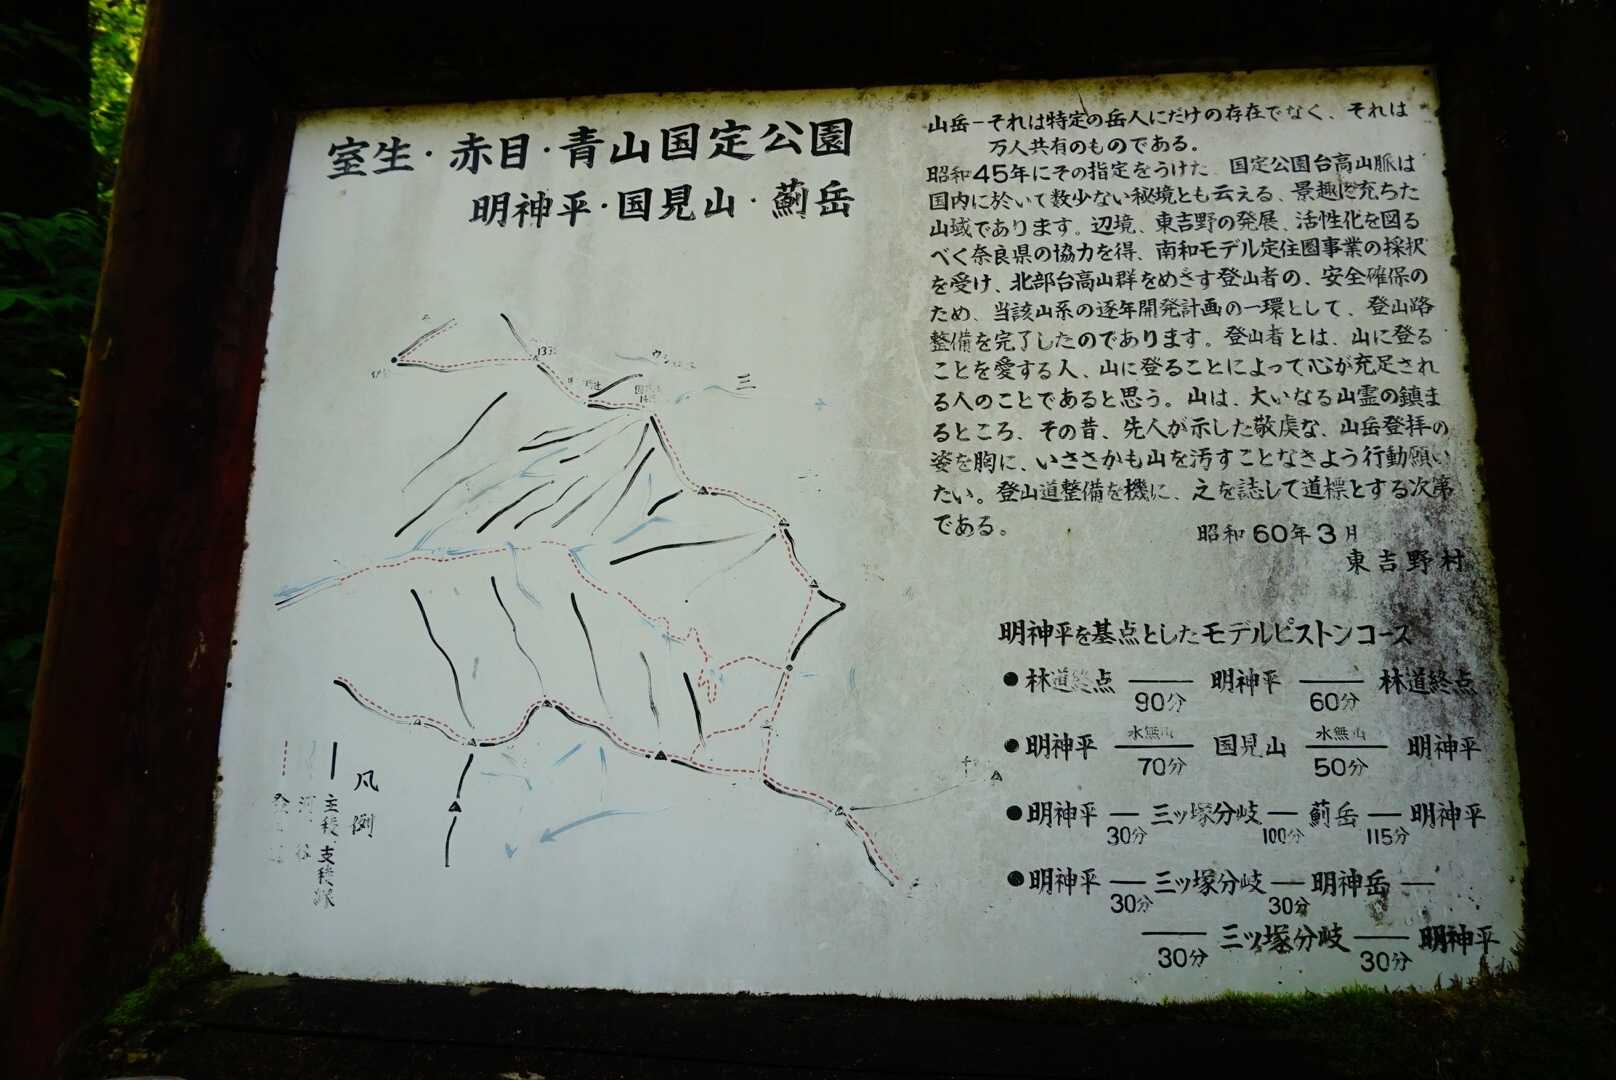 室生・赤目・青山国定公園
明神平・国見山・薊岳
山岳ーそれは特定の岳人にだけの存在でなく、それは
万人共有のものである。
昭和45年にその指定をうけた、国定公園台高山脈は
国内に於いて数少ない秘境とも云える、景趣に充ちた
山域であります。辺境、東吉野の発展、活性化を図る
べく奈良県の協力を得、南和モデル定住圏事業の採択
を受け、北部台高山群をめざす登山者の、安全確保の
ため、当該山系の逐年開発計画の一環として、登山路
整備を完了したのであります。登山者とは、山に登る
ことを愛する人、山に登ることによって心が充足され
る人のことであると思う。山は、大いなる山霊の鎮ま
るところ、その昔、先人が示した敬虔な、山岳登拝の
姿を胸に、いささかも山を汚すことなきよう行動願い
たい。登山道整備を機に、之を誌して道標とする次第
である。
昭和60年3月
東吉野村
明神平を基点としたモデルピストンコース
●林道終点 ── 明神平 ── 林道終点
90分 60分
水無山 水無山
●明神平 ── 国見山 ── 明神平
70分 50分
●明神平 ─ 三ッ塚分岐 ─ 薊岳 ─ 明神平
30分 100分 115分
●明神平 ─ 三ッ塚分岐 ─ 明神岳 ─
30分 30分
── 三ッ塚分岐 ── 明神平
30分 30分
凡例
主稜、支稜線
河谷